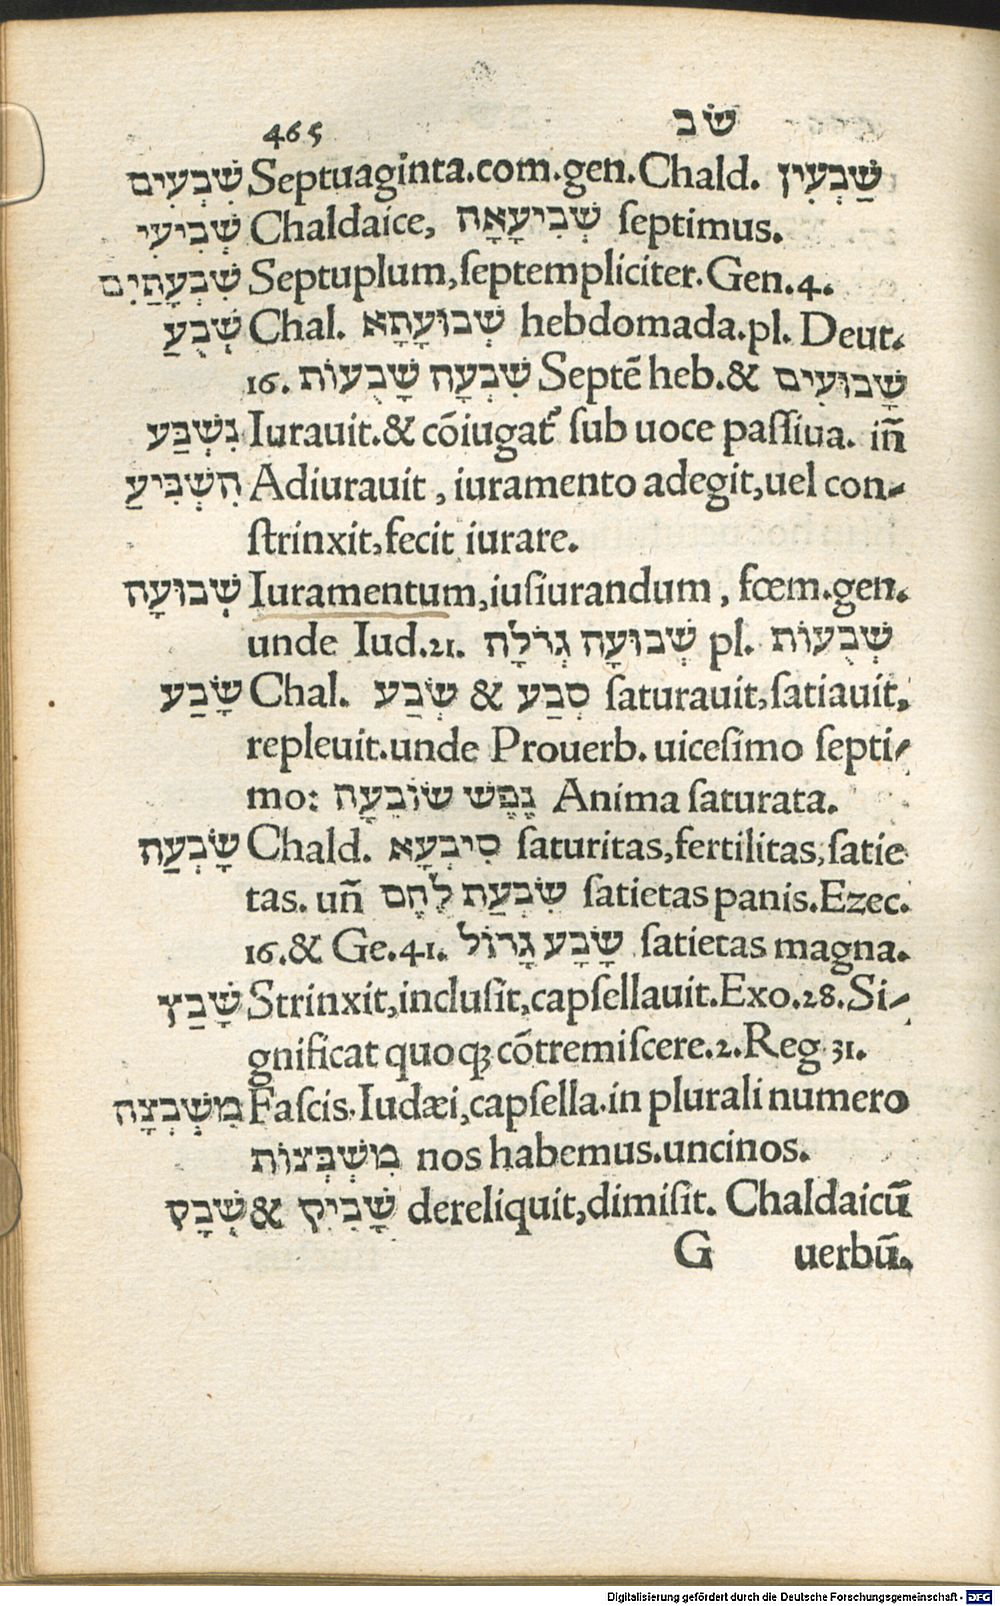 465 שב
שִׁבְעִים Septuaginta.com.gen.Chald. שַׁבְעִין
שְׁבִיעִי Chaldaice, שְׁבִיעָאָה ſeptimus.
שִׁבְעָתַיִם Septuplum,ſeptempliciter.Gen.4.
שָׁבֻעַ Chal. שְׁבוּעָתָא hebdomada.pl. Deut.
16. שִׁבְעָה שָׁבֻעוֹת Septē heb.& שָׁבוּעִים
נִשְׁבַּע Iurauit.& cōiugat᷑ ſub uoce paſſiua. iñ
הִשְׁבִּיעַ Adiurauit, iuramento adegit,uel con-
ſtrinxit,fecit iurare.
שְׁבוּעָה Iuramentum,iuſiurandum, fœm.gen.
unde Iud.21. שְׁבוּעָה גְדֹלָה pl. שְׁבֻעוֹת
שָׂבַע Chal. שְׂבַע & סְבַע ſaturauit,ſatiauit,
repleuit.unde Prouerb. uiceſimo ſepti-
mo: נֶפֶשׁ שׂוֹבֵעָה Anima ſaturata.
שָׂבְעַה Chald. סִיבְעָא ſaturitas,fertilitas,ſatie
tas. uñ שִׂבְעַת לֶחֶם ſatietas panis.Ezec.
16.& Ge.41. שָׂבָע גָּדוֹל ſatietas magna.
שָׁבַץ Strinxit,incluſit,capſellauit.Exo.28.Si-
gnificat quoqꝫ cōtremiſcere.2.Reg.31.
מִשְׁבְּצָה Faſcis.Iudæi,capſella.in plurali numero
מִשְׁבְּצוֹת nos habemus.uncinos.
שְׁבָק & שָׁבִיק dereliquit,dimiſit. Chaldaicū
G uerbū.
Digitalisierung gefördert durch die Deutsche Forschungsgemeinschaft - DFG